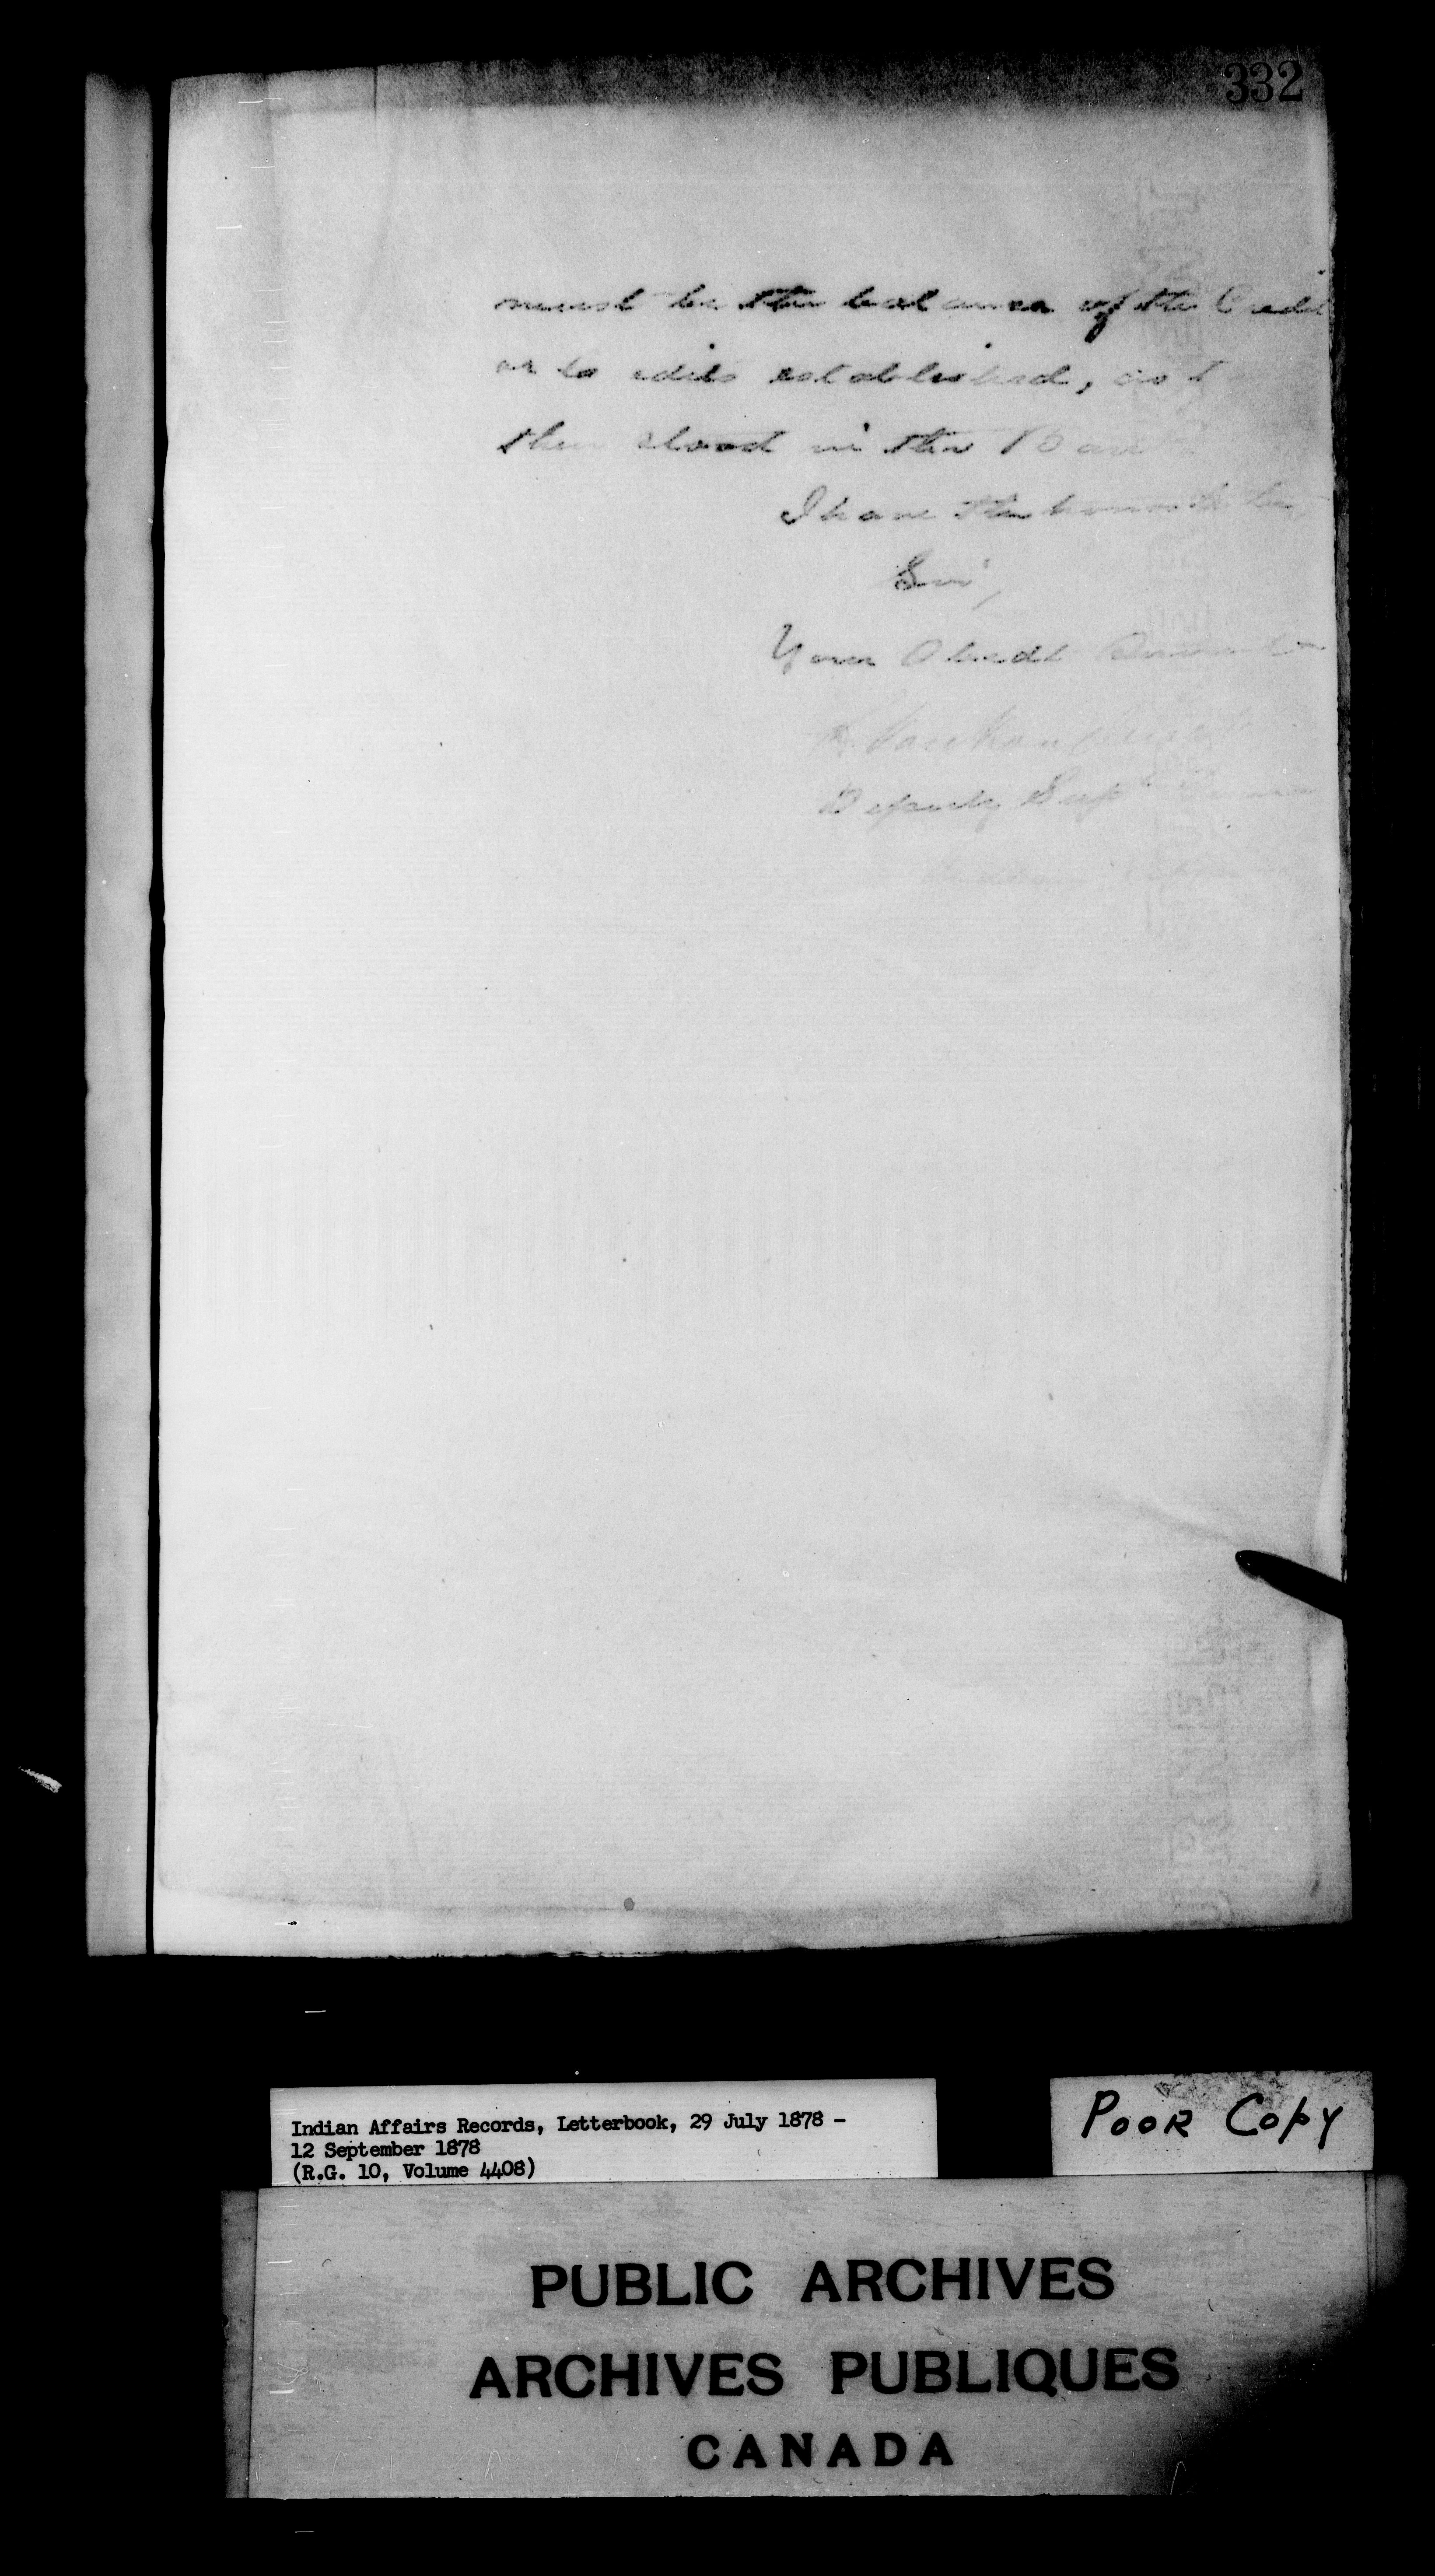 332
must be the balance of the Credit
or Credits established, as
then stood in the
I have the honor to be,
Sir,
Your Obedt Servant
Deputy Supt
Indian Affairs Records, Letterbook, 29 July 1878 -
12 September 1878
(R.G. 10, Volume 4408)
POOR COPY
PUBLIC ARCHIVES
ARCHIVES PUBLIQUES
CANADA